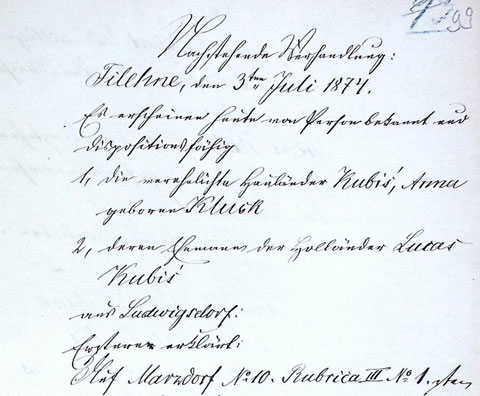 99
Nachstehende Verhandlung:
Filehne, den 3ten Juli 1874.
Es erscheinen heute von Person bekannt und
dispositionsfähig
1, die verehelichte Hauländer Kubiś, Anna
geborene Kluck
2, deren Ehemann der Holländer Lucas
Kubiś
aus Ludwigsdorf:
Erstere erklärt:
Auf Marzdorf No 10. Rubrica III No 1.